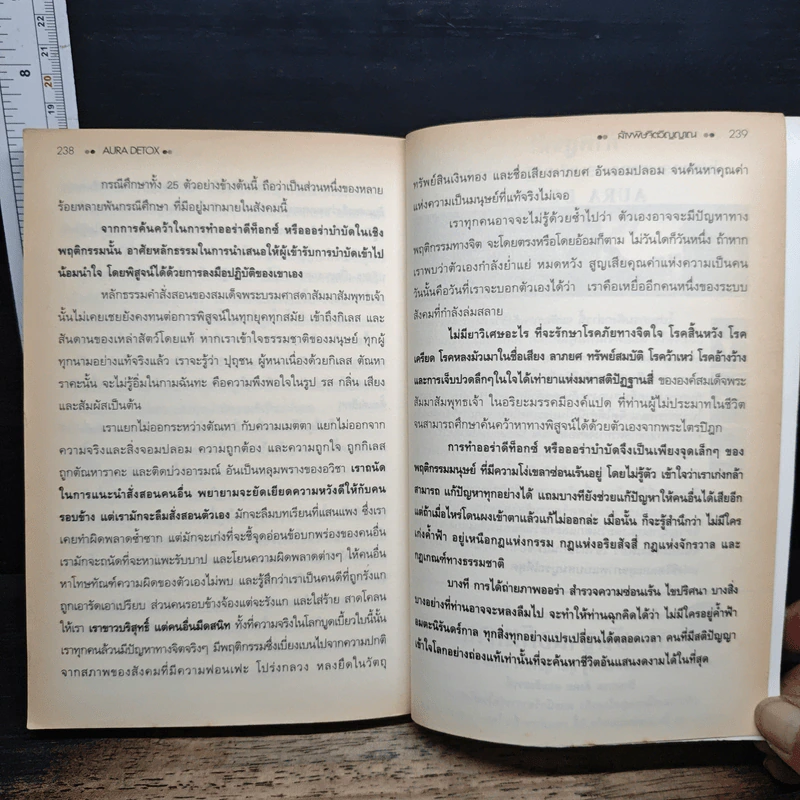 8
22
21
20
19
238 AURA DETOX
กรณีศึกษาทั้ง 25 ตัวอย่างข้างต้นนี้ ถือว่าเป็นส่วนหนึ่งของหลาย
ร้อยหลายพันกรณีศึกษา ที่มีอยู่มากมายในสังคมนี้
จากการค้นคว้าในการทำออร่าดีท็อกซ์ หรือออร่าบำบัดในเชิง
พฤติกรรมนั้น อาศัยหลักธรรมในการนำเสนอให้ผู้เข้ารับการบำบัดเข้าไป
น้อมนำใจ โดยพิสูจน์ได้ด้วยการลงมือปฏิบัติของเขาเอง
หลักธรรมคำสั่งสอนของสมเด็จพระบรมศาสดาสัมมาสัมพุทธเจ้า
นั้นไม่เคยเชยยังคงทนต่อการพิสูจน์ในทุกยุคทุกสมัย เข้าถึงกิเลส และ
สันดานของเหล่าสัตว์โดยแท้ หากเราเข้าใจธรรมชาติของมนุษย์ ทุกผู้
ทุกนามอย่างแท้จริงแล้ว เราจะรู้ว่า ปุถุชน ผู้หนาเนื่องด้วยกิเลส ตัณหา
ราคะนั้น จะไม่รู้อิ่มในกามฉันทะ คือความพึงพอใจในรูป รส กลิ่น เสียง
และสัมผัสเป็นต้น
เราแยกไม่ออกระหว่างตัณหา กับความเมตตา แยกไม่ออกจาก
ความจริงและสิ่งจอมปลอม ความถูกต้อง และความถูกใจ ถูกกิเลส
ถูกตัณหาราคะ และติดบ่วงอารมณ์ อันเป็นหลุมพรางของอวิชา เราถนัด
ในการแนะนำสั่งสอนคนอื่น พยายามจะยัดเยียดความหวังดีให้กับคน
รอบข้าง แต่เรามักจะลืมสั่งสอนตัวเอง มักจะลืมบทเรียนที่แสนแพง ซึ่งเรา
เคยทำผิดพลาดซ้ำซาก แต่มักจะเก่งที่จะชี้จุดอ่อนข้อบกพร่องของคนอื่น
เรามักจะถนัดที่จะหาแพะรับบาป และโยนความผิดพลาดต่างๆ ให้คนอื่น
หาโทษทัณฑ์ความผิดของตัวเองไม่พบ และรู้สึกว่าเราเป็นคนดีที่ถูกรังแก
ถูกเอารัดเอาเปรียบ ส่วนคนรอบข้างจ้องแต่จะรังแก และใส่ร้าย สาดโคลน
ให้เรา เราขาวบริสุทธิ์ แต่คนอื่นมืดสนิท ทั้งที่ความจริงในโลกบูดเบี้ยวใบนี้นั้น
เราทุกคนล้วนมีปัญหาทางจิตจริงๆ มีพฤติกรรมซึ่งเบี่ยงเบนไปจากความปกติ
จากสภาพของสังคมที่มีความฟอนเฟะ โปร่งกลวง หลงยึดในวัตถุ
ล้างพิษจิตวิญญาณ 239
ทรัพย์สินเงินทอง และชื่อเสียงลาภยศ อันจอมปลอม จนค้นหาคุณค่า
แห่งความเป็นมนุษย์ที่แท้จริงไม่เจอ
เราทุกคนอาจจะไม่รู้ด้วยซ้ำไปว่า ตัวเองอาจจะมีปัญหาทาง
พฤติกรรมทางจิต จะโดยตรงหรือโดยอ้อมก็ตาม ไม่วันใดก็วันหนึ่ง ถ้าหาก
เราพบว่าตัวเองกำลังย่ำแย่ หมดหวัง สูญเสียคุณค่าแห่งความเป็นคน
วันนั้นคือวันที่เราจะบอกตัวเองได้ว่า เราคือเหยื่ออีกคนหนึ่งของระบบ
สังคมที่กำลังล่มสลาย
ไม่มียาวิเศษอะไร ที่จะรักษาโรคภัยทางจิตใจ โรคสิ้นหวัง โรค
เครียด โรคหลงมัวเมาในชื่อเสียง ลาภยศ ทรัพย์สมบัติ โรคว้าเหว่ โรคอ้างว้าง
และการเจ็บปวดลึกๆในใจได้เท่ายาแห่งมหาสติปัฏฐานสี่ ขององค์สมเด็จพระ
สัมมาสัมพุทธเจ้า ในอริยะมรรคมีองค์แปด ที่ท่านผู้ไม่ประมาทในชีวิต
จนสามารถศึกษาค้นคว้าหาทางพิสูจน์ได้ด้วยตัวเองจากพระไตรปิฎก
การทำออร่าดีท็อกซ์ หรือออร่าบำบัดจึงเป็นเพียงจุดเล็กๆ ของ
พฤติกรรมมนุษย์ ที่มีความโง่เขลาซ่อนเร้นอยู่ โดยไม่รู้ตัว เข้าใจว่าเราเก่งกล้า
สามารถ แก้ปัญหาทุกอย่างได้ แถมบางทียังช่วยแก้ปัญหาให้คนอื่นได้เสียอีก
แต่ถ้าเมื่อไหร่โดนผงเข้าตาแล้วแก้ไม่ออกล่ะ เมื่อนั้น ก็จะรู้สำนึกว่า ไม่มีใคร
เก่งค้ำฟ้า อยู่เหนือกฎแห่งกรรม กฎแห่งอริยสัจสี่ กฎแห่งจักรวาล และ
กฎเกณฑ์ทางธรรมชาติ
บางที การได้ถ่ายภาพออร่า สำรวจความซ่อนเร้น ไขปริศนา บางสิ่ง
บางอย่างที่ท่านอาจจะหลงลืมไป จะทำให้ท่านฉุกคิดได้ว่า ไม่มีใครอยู่ค้ำฟ้า
อมตะนิรันดร์กาล ทุกสิ่งทุกอย่างแปรเปลี่ยนได้ตลอดเวลา คนที่มีสติปัญญา
เข้าใจโลกอย่างถ่องแท้เท่านั้นที่จะค้นหาชีวิตอันแสนงดงามได้ในที่สุด